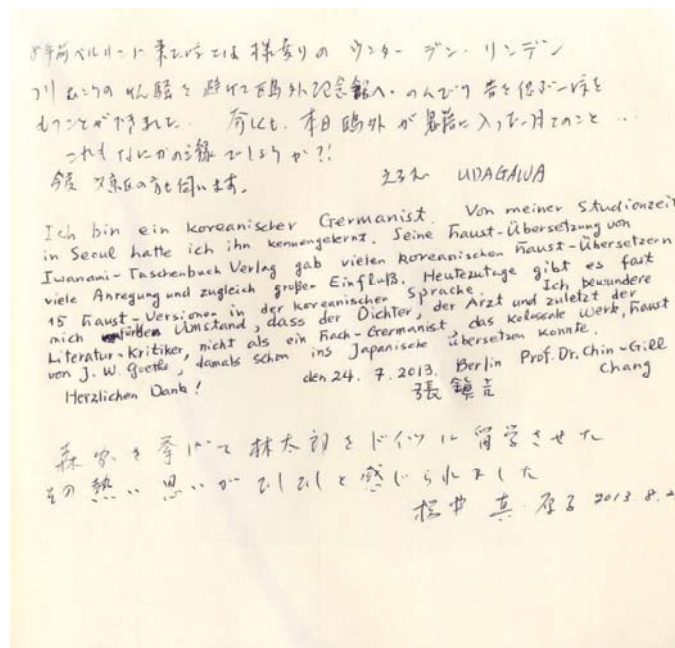 年前ベルリンに来た時とは様変りの ウンター デン・リンデン
の喧騒を避けて鴎外記念館へ. のんびり昔を偲ぶ一時を
もつことができました. 本日鴎外が に入った月とのこと …
これもなにかの縁でしょうか?!
今度 の家も伺います. UDAGAWA
Ich bin ein koreanischer Germanist. Von meiner Studienzeit
in Seoul hatte ich ihn kennengelernt. Seine Faust-Übersetzung von
Iwanami-Taschenbuch Verlag gab vielen koreanischen Faust-Übersetzern
viele Anregung und zugleich großen Einfluß. Heutezutage gibt es fast
15 Faust-Versionen in der koreanischen Sprache. Ich bewundere
mich Umstand, dass der Dichter, der Arzt und zuletzt der
Literatur-Kritiker, nicht als ein Fach-Germanist, das kolossale Werk, Faust
von J. W. Goethe, damals schon ins Japanische übersetzen konnte.
Herzlichen Dank! den 24. 7. 2013. Berlin Prof. Dr. Chin-Gill
Chang
張鎭吉
森家を挙げて林太郎をドイツに留学させた
その熱い思いがひしひしと感じられました
2013.8.2